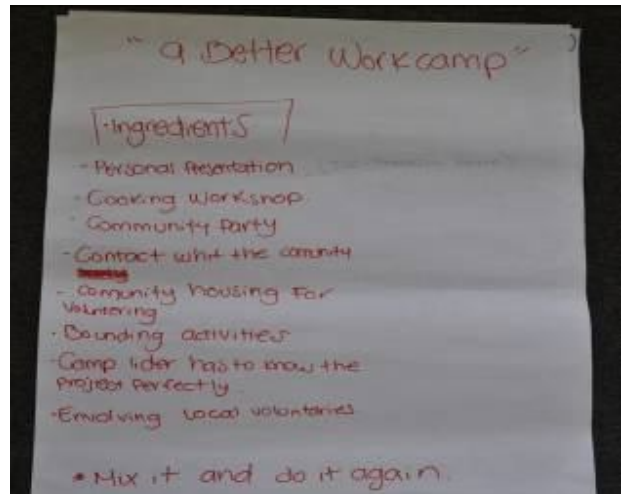 "a Better Workcamp"
·Ingredients
- Personal Presentation
- Cooking Workshop
· Community Party
- Contact whit the comunity
- Comunity housing For
voluntering
· Bounding activities
- Camp lider has to know the
project perfectly
- Envolving Local voluntaries
* Mix it and do it again.